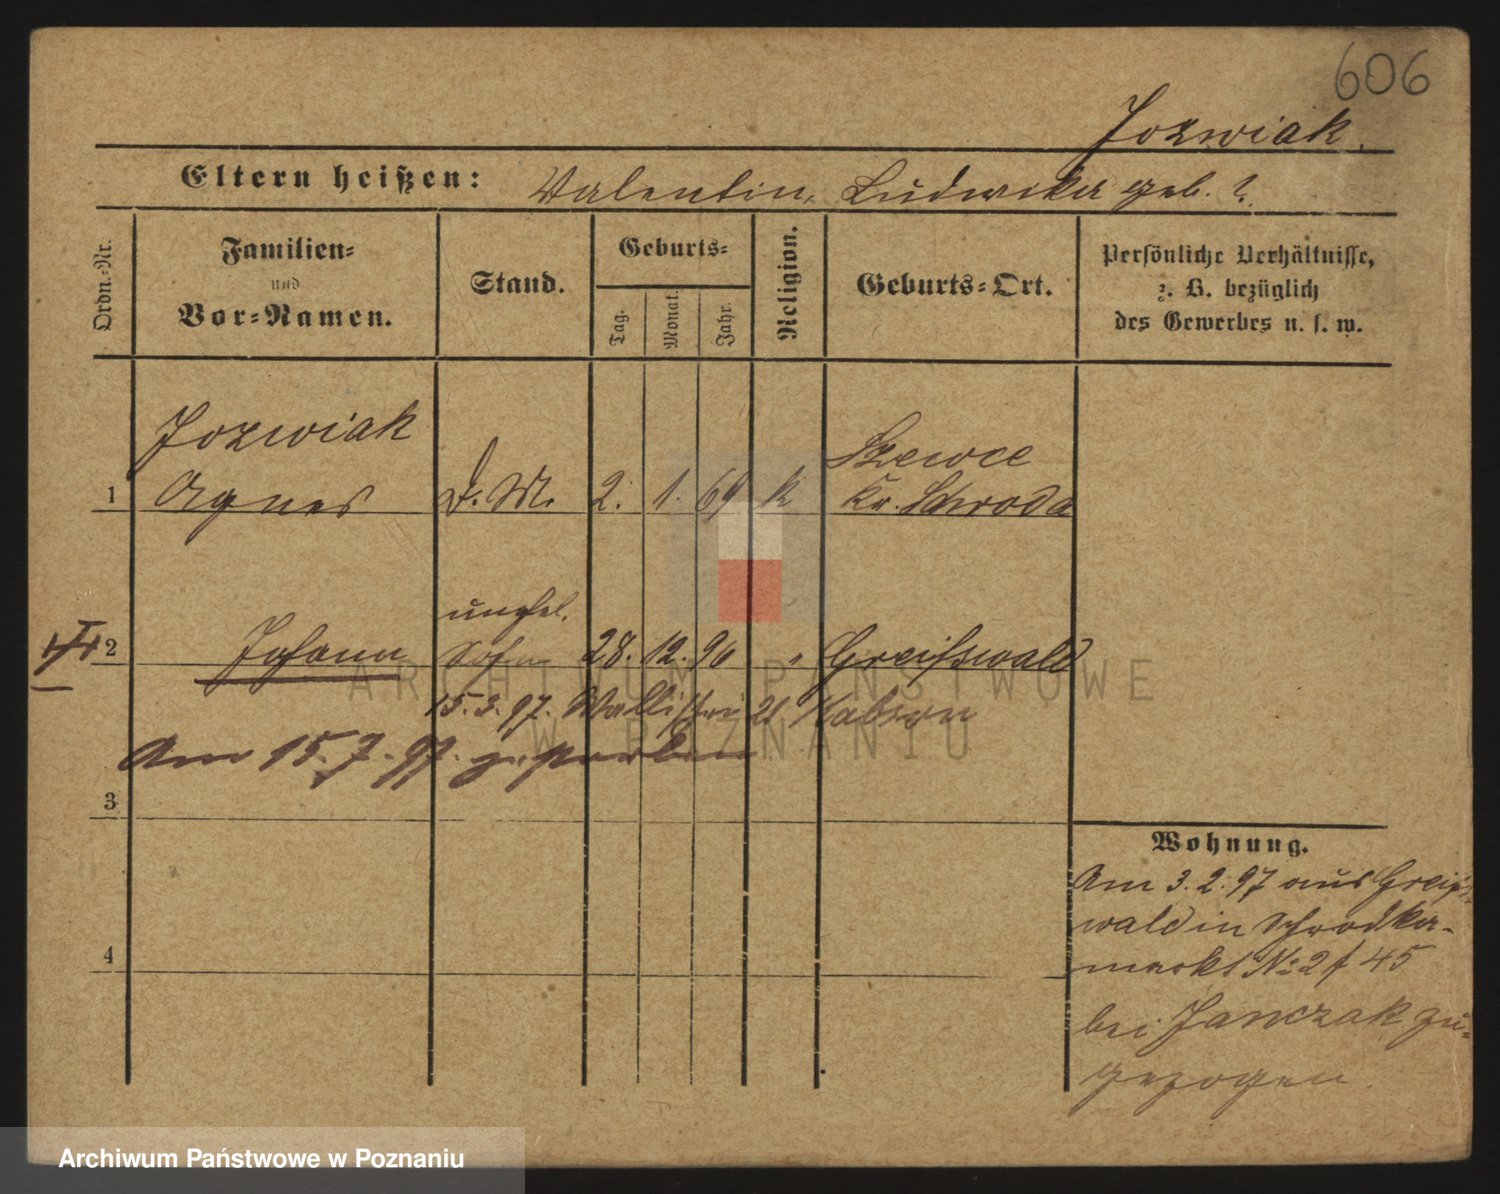 606
Jozwiak.
Eltern heißen: Valentin, Ludwika geb. ?
Ordn.-Nr. Familien- und Vor-Namen. Stand. Geburts- Tag. Monat. Jahr. Religion. Geburts-Ort. Persönliche Verhältnisse, z. B. bezüglich des Gewerbes u. s. w.
Jozwiak Szewce
1 Agnes D. M. 2. 1. 69 k Kr. Schroda
unehel.
2 Johann Sohn 28. 12. 96 " Greifswald
15. 3. 97. Wallischei 21
Am 15. 7. 97. gestorben
3
Wohnung.
Am 3. 2. 97 aus Greifs-
wald in Schrodka-
markt No 2 45
4
bei Janczak zu-
gezogen.
ARCHIWUM PAŃSTWOWE
W POZNANIU
Archiwum Państwowe w Poznaniu